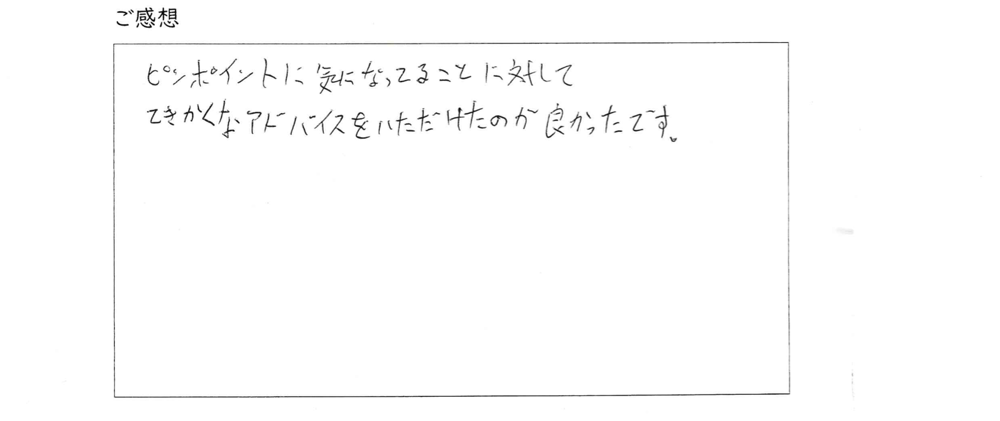 ご感想
ピンポイントに気になってることに対して
てきかくなアドバイスをいただけたのが良かったです。